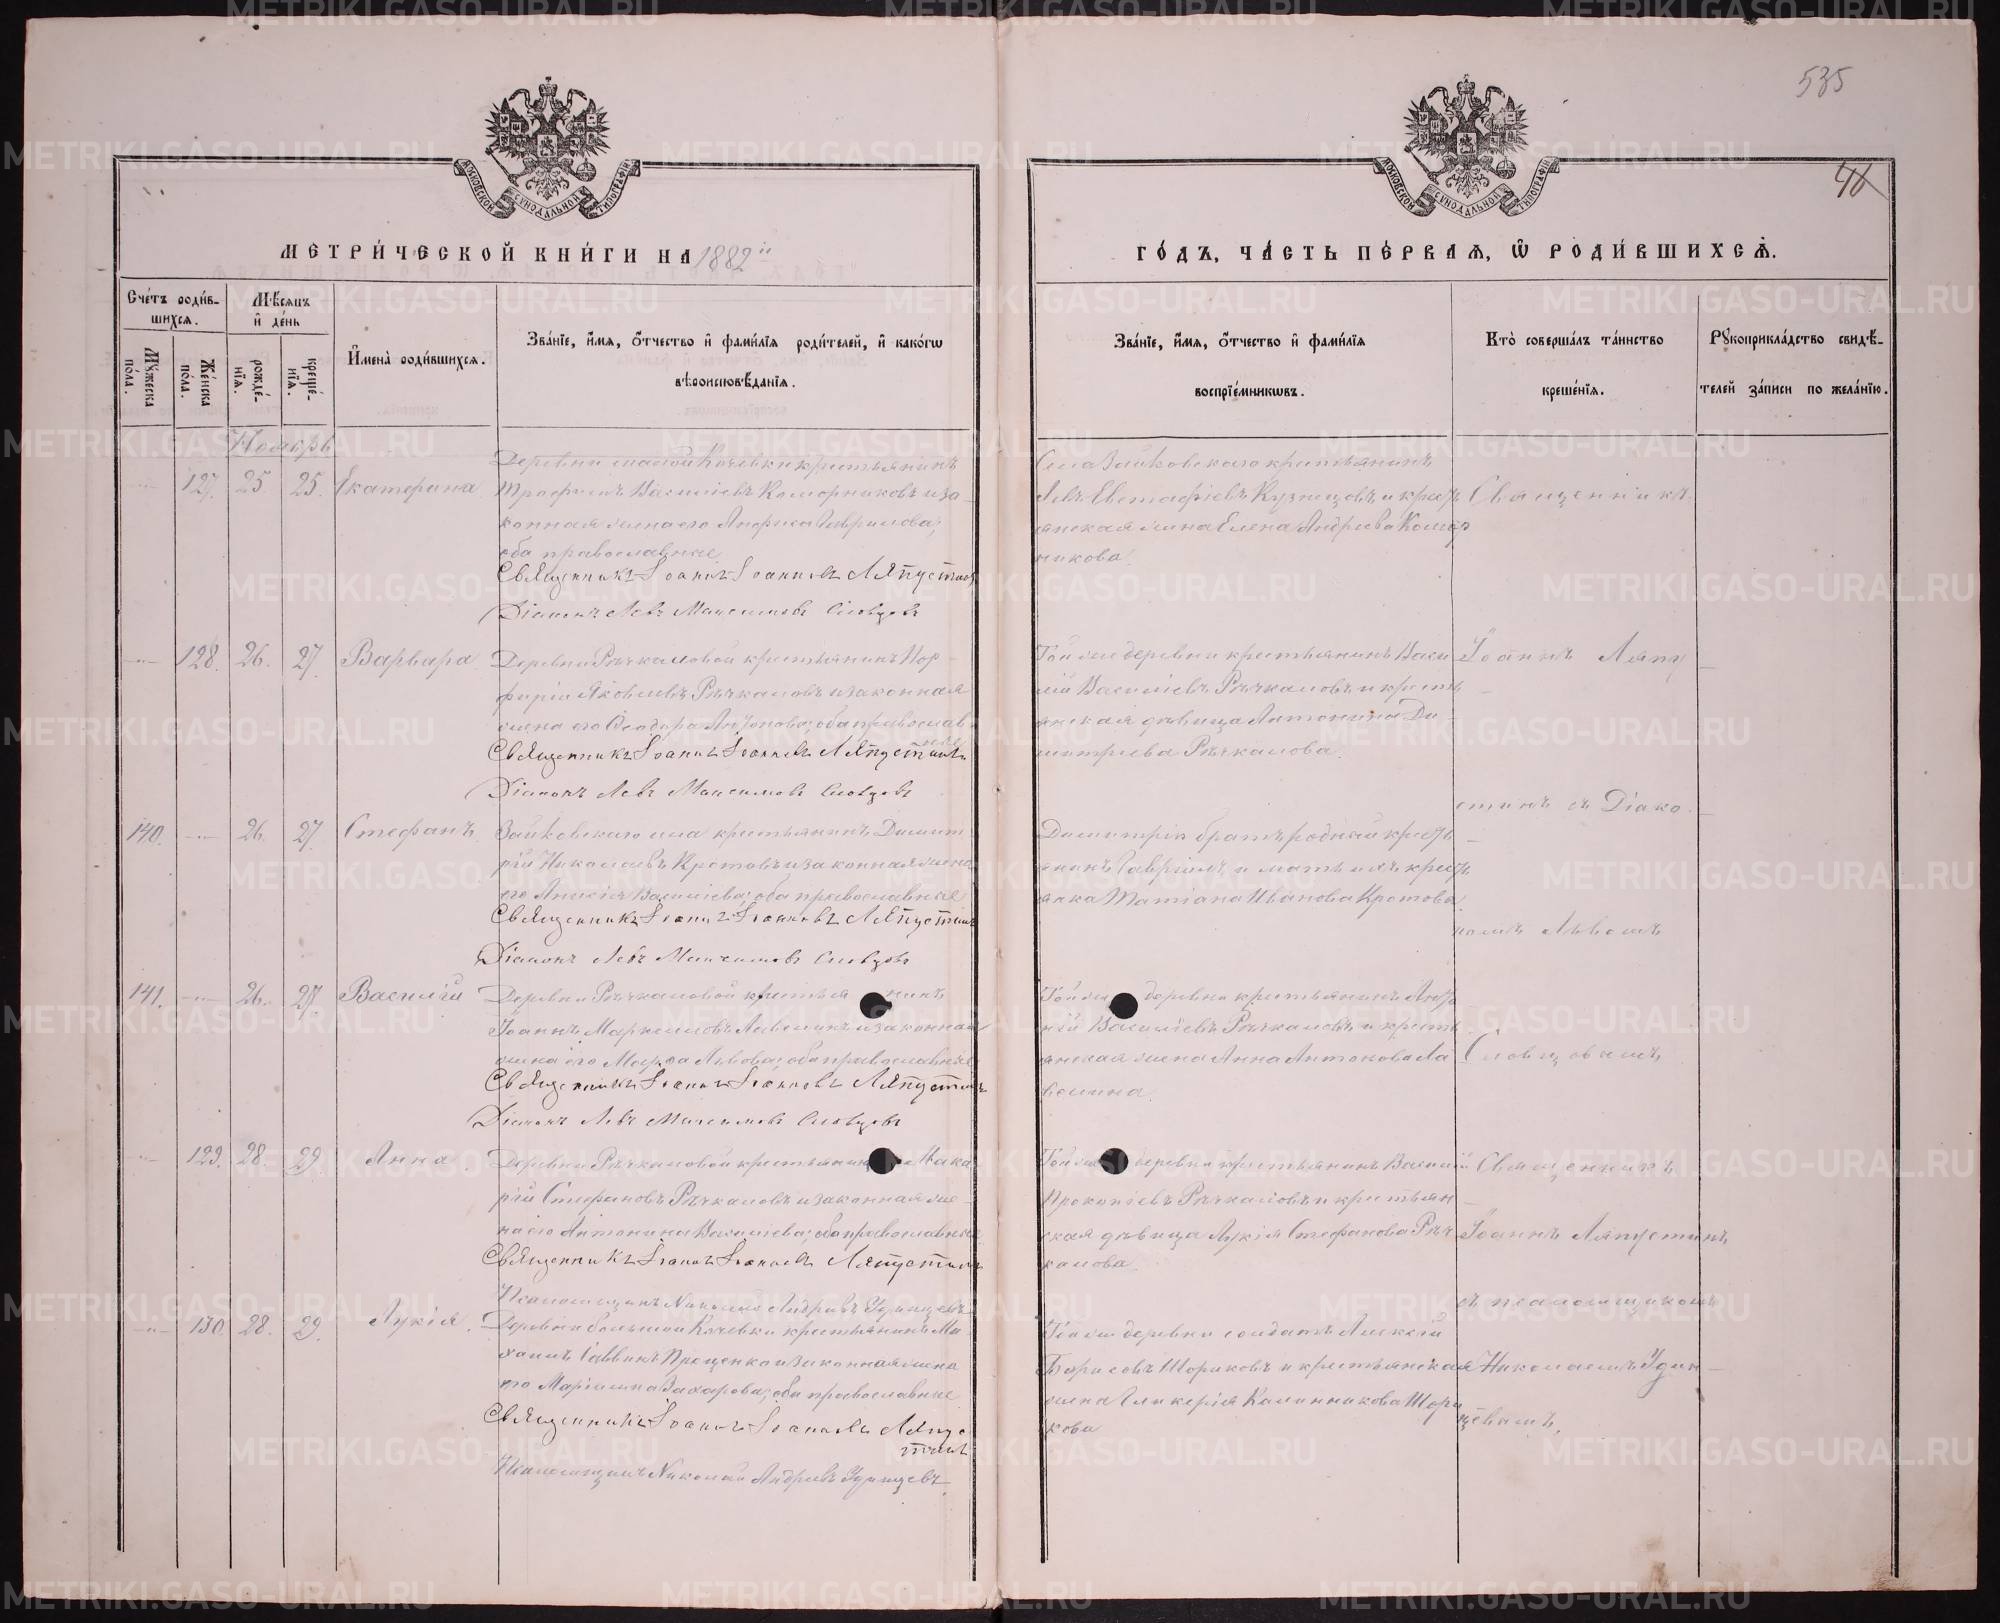 535
МОСКОВСКОЙ СѴНОДАЛЬНОЙ ТИПОГРАФІИ
МОСКОВСКОЙ СѴНОДАЛЬНОЙ ТИПОГРАФІИ
МЕТРИ́ЧЕСКОЙ КНИ́ГИ НА 1882й
ГО́ДЪ, ЧА́СТЬ ПЕ́РВАЯ, Ѿ РОДИ́ВШИХСЯ.
Сче́тъ роди́в-
шихся.
Мѣсяцъ
и де́нь
Мꙋжеска
по́ла.
Же́нска
по́ла.
рожде́-
нїя.
креще́-
нїя.
И҆мена̀ роди́вшихся.
Зва́нїе, и҆́мя, ѻ҆́тчество и҆ фами́лїя роди́телей, и҆ како́гѡ
вѣроисповѣ́данїя.
Зва́нїе, и҆́мя, ѻ҆́тчество и҆ фами́лїя
воспрїе́мникѡвъ.
Кто̀ соверша́лъ та́инство
креще́нїя.
Рꙋкоприкла́дство свидѣ́-
телей за́писи по жела́нїю.
Ноябрь
127. 25 25. Екатерина.
Деревни малой Кочевки крестьянинъ
Трофимъ Васильевъ Коморниковъ и за-
конная жена его Анфиса Гаврилова;
оба православные
Священникъ Іоаннъ Іоанновъ Ляпустинъ
Діаконъ Левъ Максимовъ Словцовъ
Села Зайковскаго крестьянинъ
Левъ Евстафіевъ Кузнецовъ и крест
янская жена Елена Андреева Комор
никова.
Священникъ
128. 26. 27. Варвара.
Деревни Рѣчкаловой крестьянинъ Пор-
фирій Яковлевъ Рѣчкаловъ и законная
жена его Ѳеодора Антонова; оба православ-
ные
Священникъ Іоаннъ Іоанновъ Ляпустинъ
Діаконъ Левъ Максимовъ Словцовъ
Той же деревни крестьянинъ Васи
лій Васильевъ Рѣчкаловъ и кресть
янская дѣвица Антонина Ди-
митріева Рѣчкалова.
Іоаннъ Ляпу
стинъ съ Діако
140. 26. 27. Стефанъ.
Зайковскаго села крестьянинъ Димит-
рій Николаевъ Кротовъ и законная жена
его Анисія Васильева; оба православные
Священникъ Іоаннъ Іоанновъ Ляпустинъ
Діаконъ Левъ Максимовъ Словцовъ
Димитрія братъ родный крестъ
янинъ Гавріилъ и мать ихъ крест
янка Татіана Иванова Кротова.
номъ Львомъ
141. 26. 27. Василій
Деревни Рѣчкаловой крестьянинъ
Іоаннъ Маркелловъ и законная
жена его Марѳа Львова; оба православные
Священникъ Іоаннъ Іоанновъ Ляпустинъ
Діаконъ Левъ Максимовъ Словцовъ
Той же деревни крестьянинъ
Васильевъ Рѣчкаловъ и кресть
янская жена Анна Антонова
Словцовымъ
129. 28. 29. Анна.
Деревни Рѣчкаловой крестьянинъ Мака-
рій Стефановъ Рѣчкаловъ и законная же-
на его Антонина Васильева; оба православные
Священникъ Іоаннъ Іоанновъ Ляпустинъ
Псаломщикъ Николай Андреевъ Удинцевъ
Той же деревни крестьянинъ Василій
Прокопіевъ Рѣчкаловъ и крестьян-
ская дѣвица Лукія Стефанова Рѣч-
калова.
Священникъ
Іоаннъ Ляпустинъ
съ псаломщикомъ
130. 28. 29. Лукія.
Деревни большой Кочевки крестьянинъ Ми-
хаилъ Саввинъ Прощенко и законная жена
его Маріамна Захарова; оба православные
Священникъ Іоаннъ Іоанновъ Ляпу
стинъ
Псаломщикъ Николай Андреевъ Удинцевъ.
Той же деревни солдатъ Алексѣй
Борисовъ Шориковъ и крестьянская
жена Гликерія Калинникова Шори
кова
Николаемъ Удин-
цевымъ.